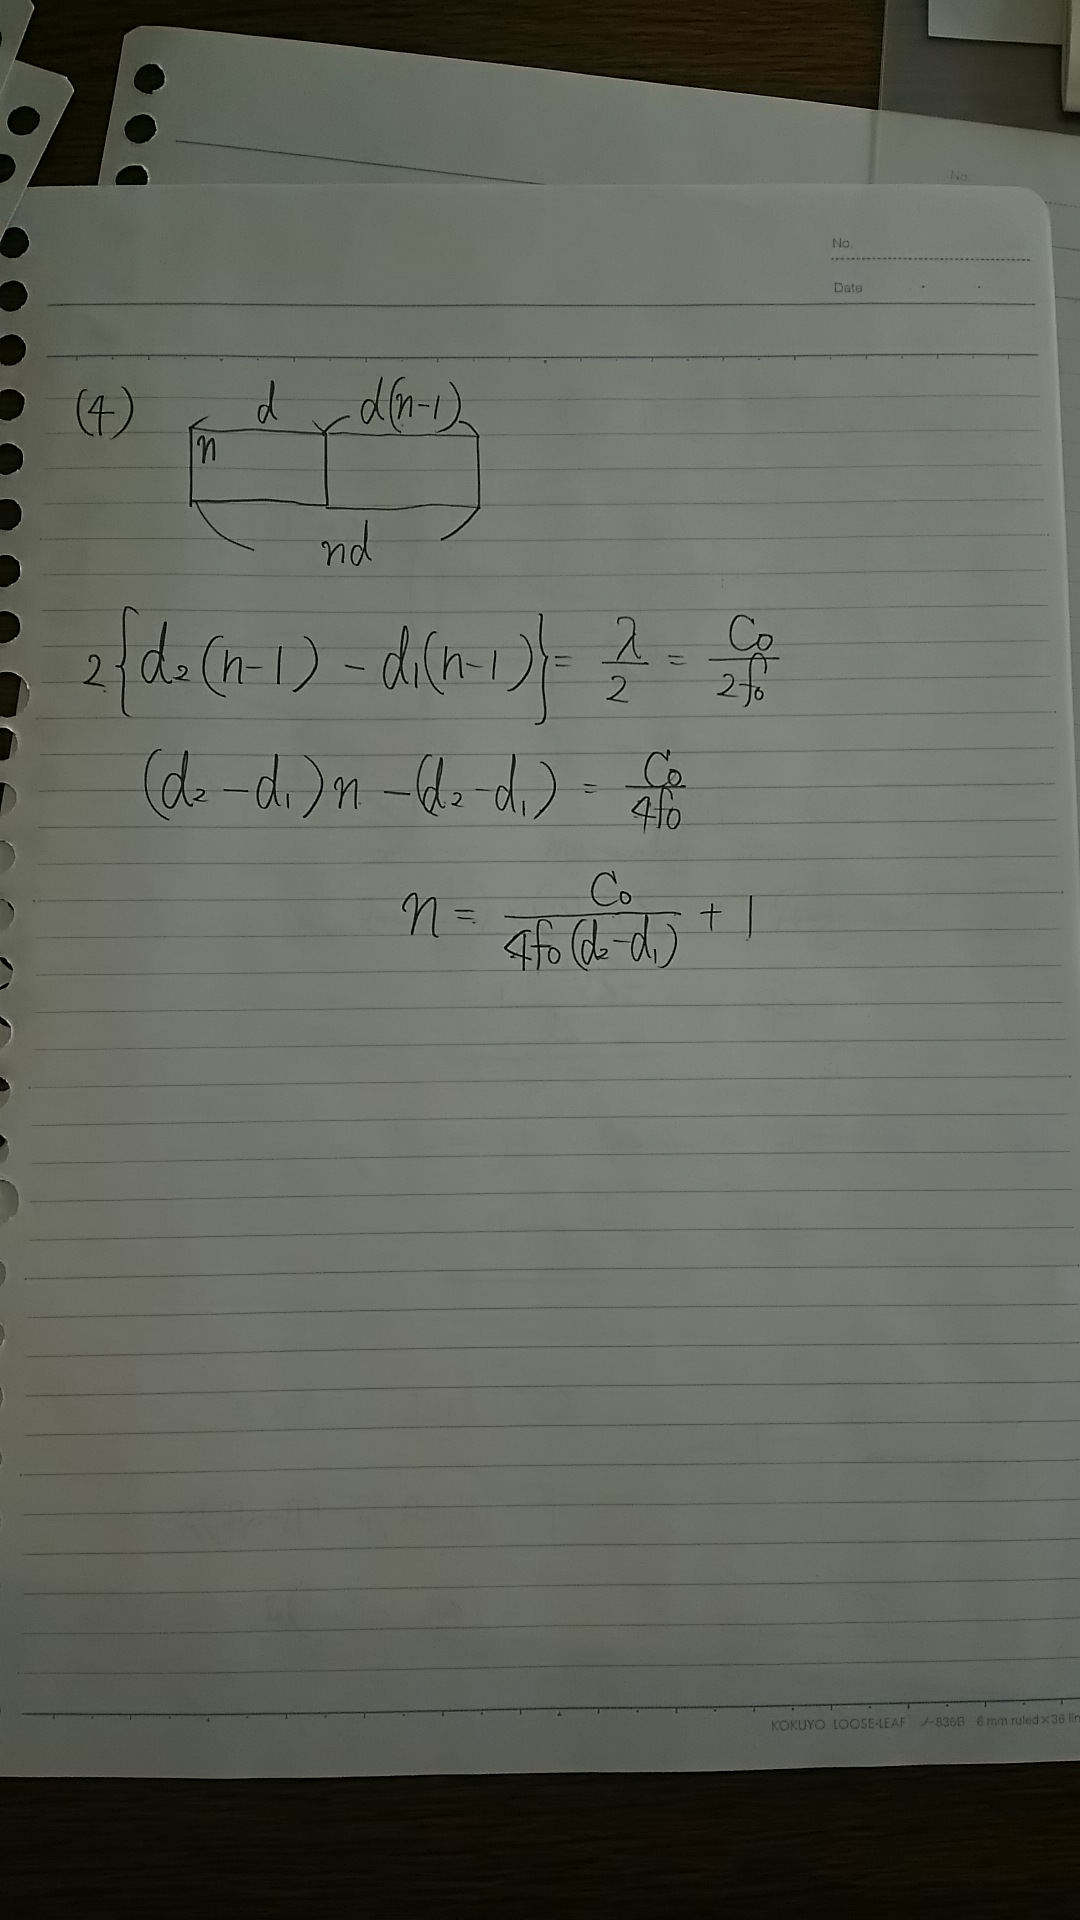 No.
No.
Date
(4)
d d(n-1)
n
nd
2{d₂(n-1) - d₁(n-1)} = λ/2 = C₀/2f₀
(d₂-d₁)n - (d₂-d₁) = C₀/4f₀
n = C₀/4f₀(d₂-d₁) + 1
KOKUYO LOOSE-LEAF ノ-836B 6 mm ruled×36 lin